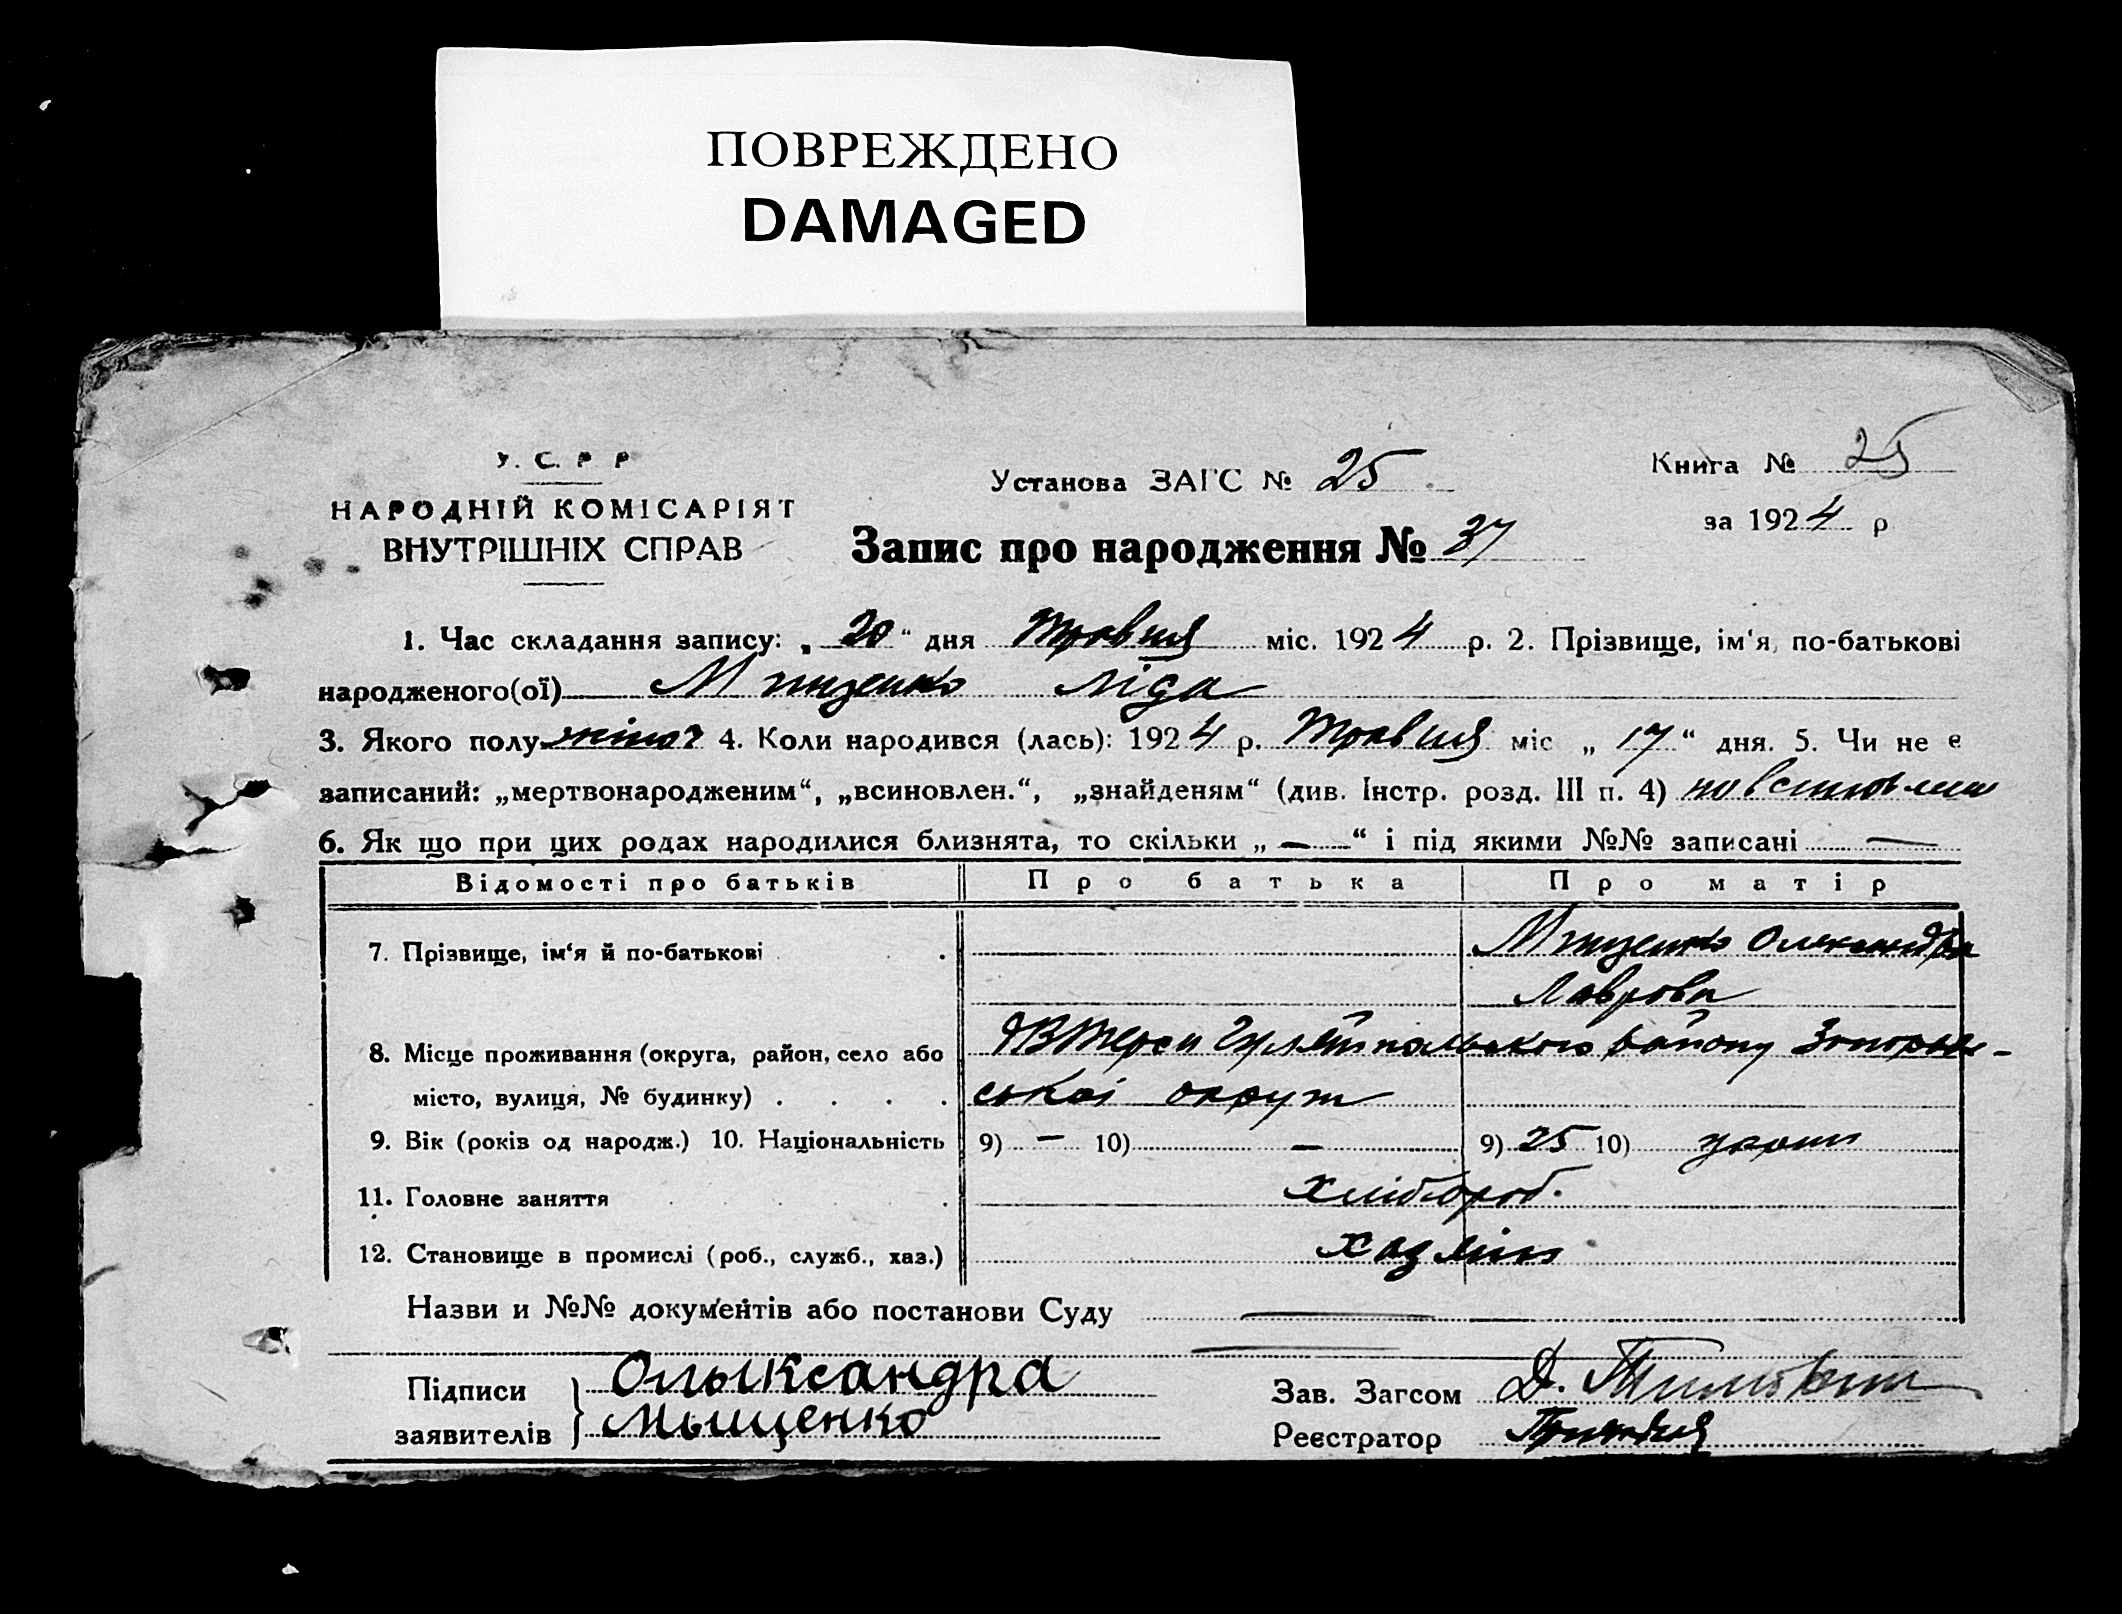 ПОВРЕЖДЕНО
DAMAGED
У. С. Р Р
НАРОДНІЙ КОМІСАРІЯТ
ВНУТРІШНІХ СПРАВ
Установа ЗАГС № 25
Книга № 25
за 1924 р
Запис про народження № 37
1. Час складання запису: „20“ дня травня міс. 1924 р. 2. Прізвище, ім‘я, по-батькові
народженого(ої) Мищенко Ліда
3. Якого полу жіноч 4. Коли народився (лась): 1924 р. травня міс „17“ дня. 5. Чи не є
записаний: „мертвонародженим“, „всиновлен.“, „знайденям“ (див. Інстр. розд. III п. 4)
6. Як що при цих родах народилися близнята, то скільки „—“ і під якими №№ записані —
Відомості про батьків Про батька Про матір
7. Прізвище, ім‘я й по-батькові Мищенко Олександра
Лаврова
8. Місце проживання (округа, район, село або Гуляйпольского району Запорож-
місто, вулиця, № будинку) ської округи
9. Вік (років од народж.) 10. Національність 9) — 10) — 9) 25 10) украин
11. Головне заняття хлібороб.
12. Становище в промислі (роб., служб., хаз.)
Назви и №№ документів або постанови Суду —
Підписи Олыксандра Зав. Загсом Д.
заявителів Мыщенко Реєстратор